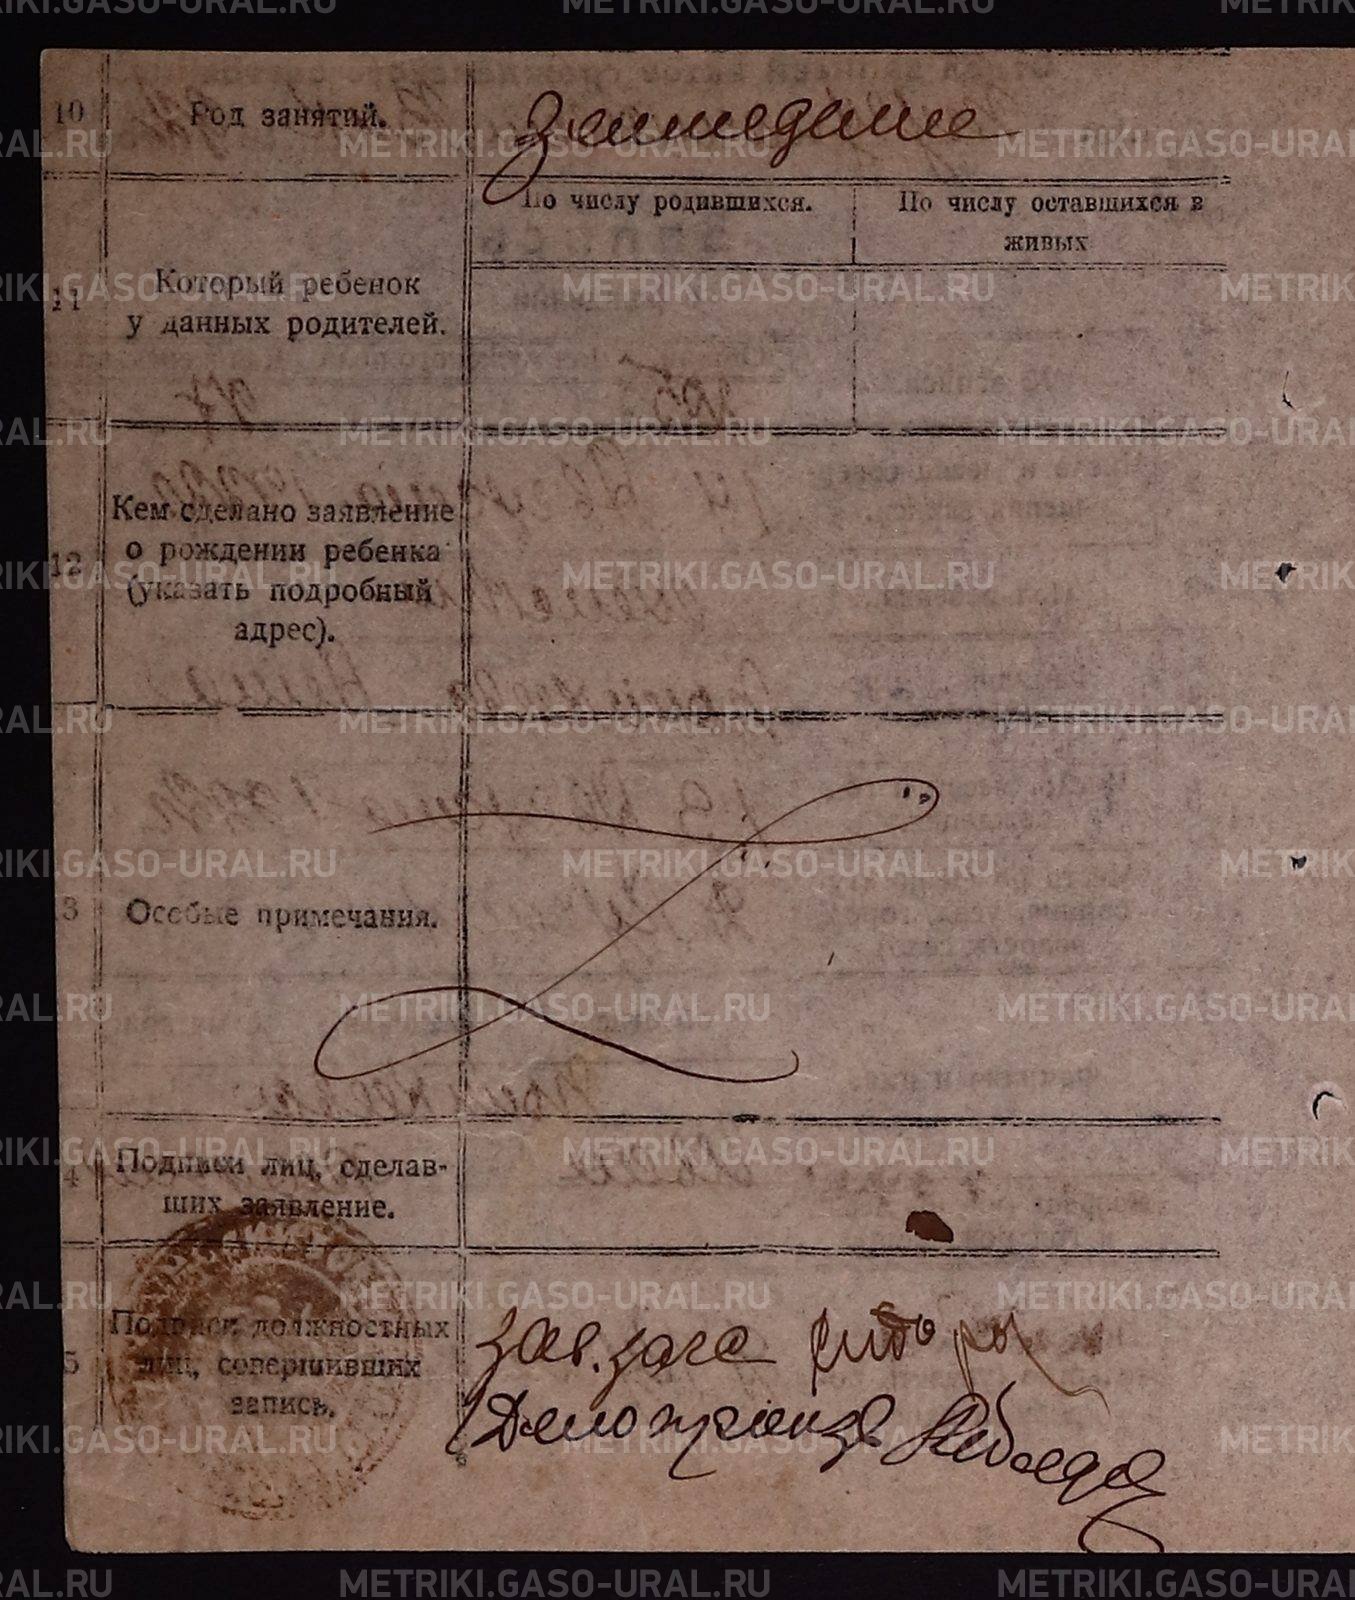 10 Род занятий. Земледелие
По числу родившихся. По числу оставшихся в живых
11 Который ребенок
у данных родителей.
12 Кем сделано заявление
о рождении ребенка
(указать подробный
адрес).
3 Особые примечания.
4 Подписи лиц, сделав-
ших заявление.
5 Подписи должностных
лиц, совершивших
запись.
зав. загс
Делопроизв
METRIKI.GASO-URAL.RU